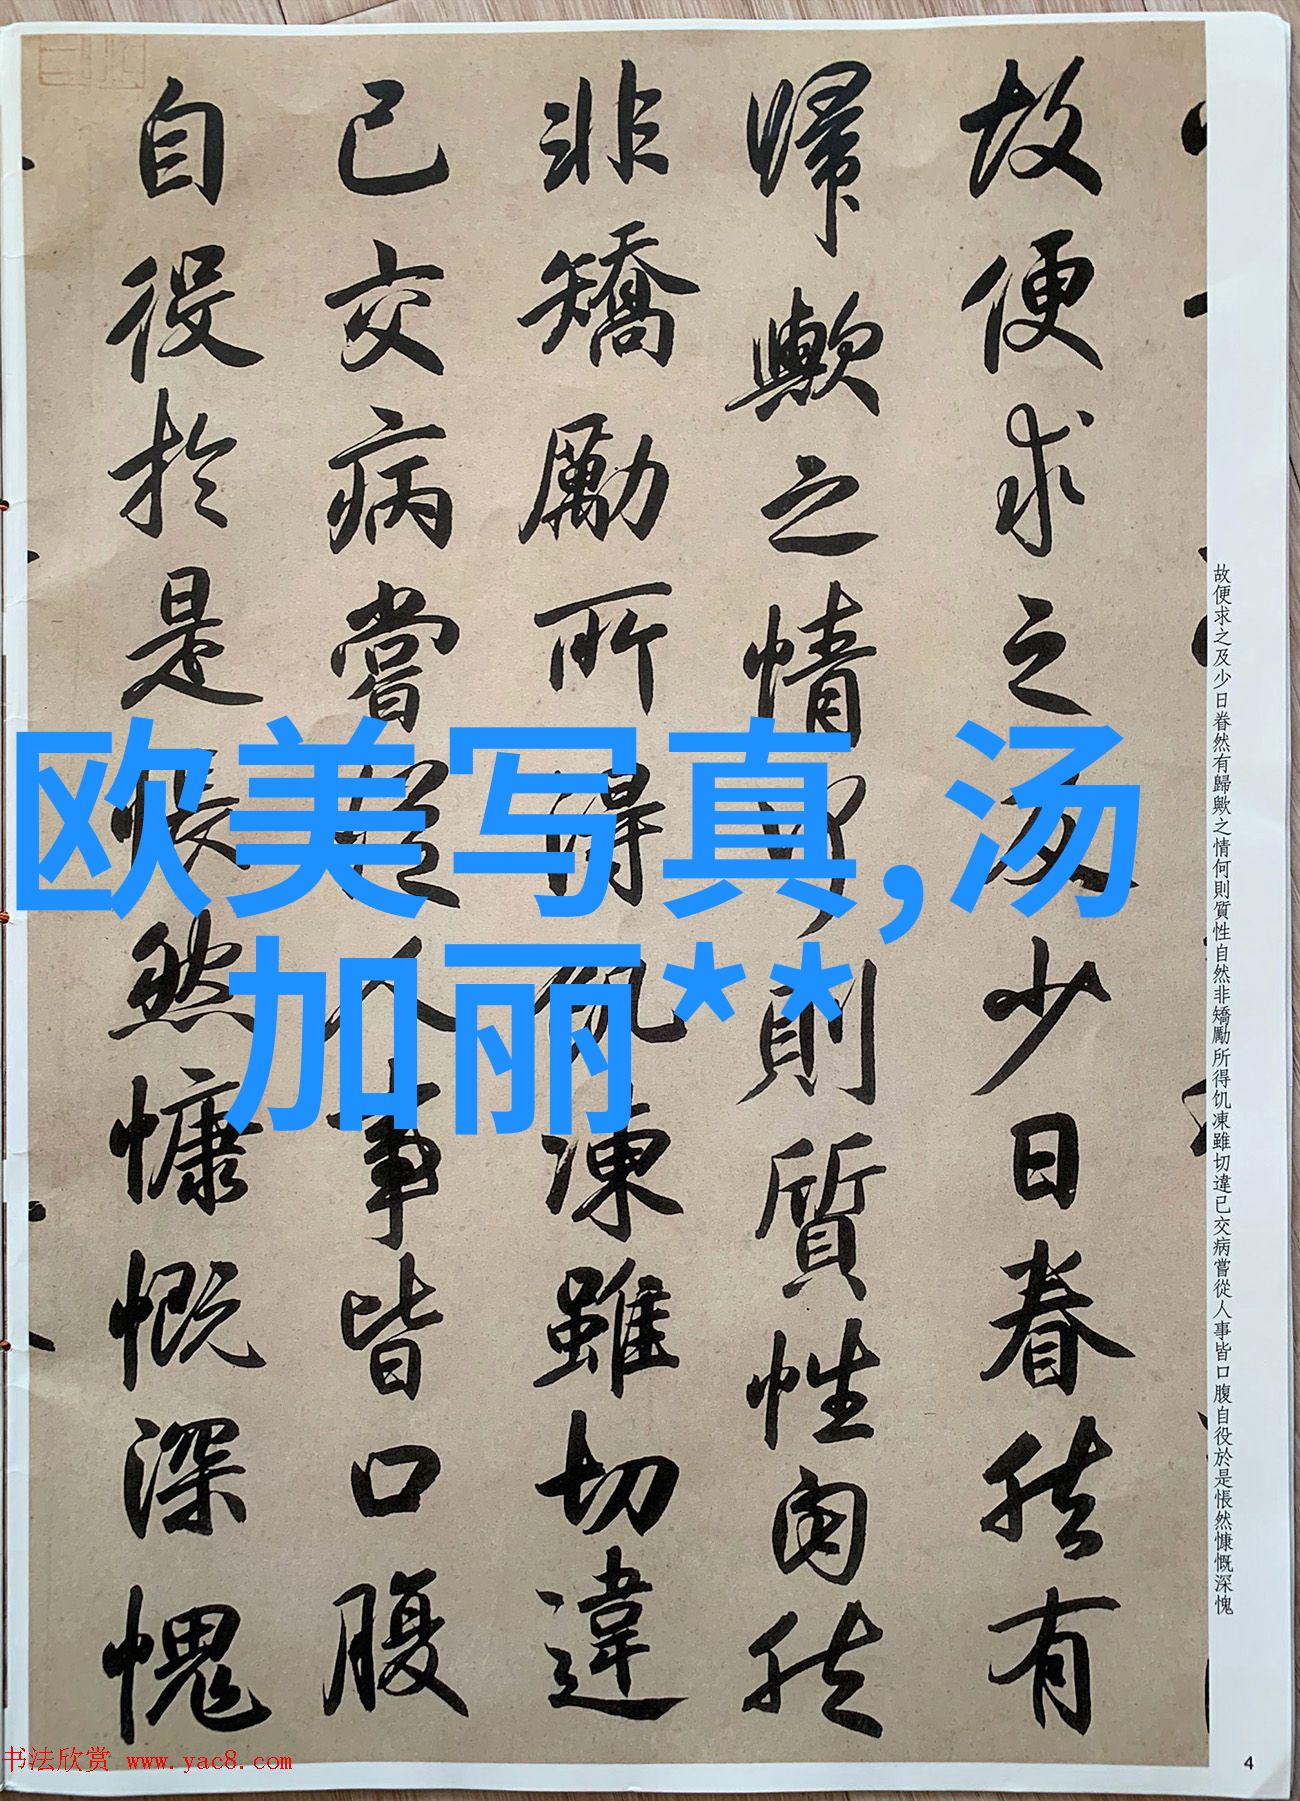 故便求之及少日眷然有
歸歟之情何則質性自然
非矯勵所得飢凍雖切違
已交病嘗從人事皆口腹
自役於是悵然慷慨深愧
故便求之及少日眷然有歸歟之情何則質性自然非矯勵所得饥凍雖切違已交病嘗從人事皆口腹自役於是悵然慷慨深愧
欧美写真,汤
加丽**
书法欣赏 www.yac8.com
4